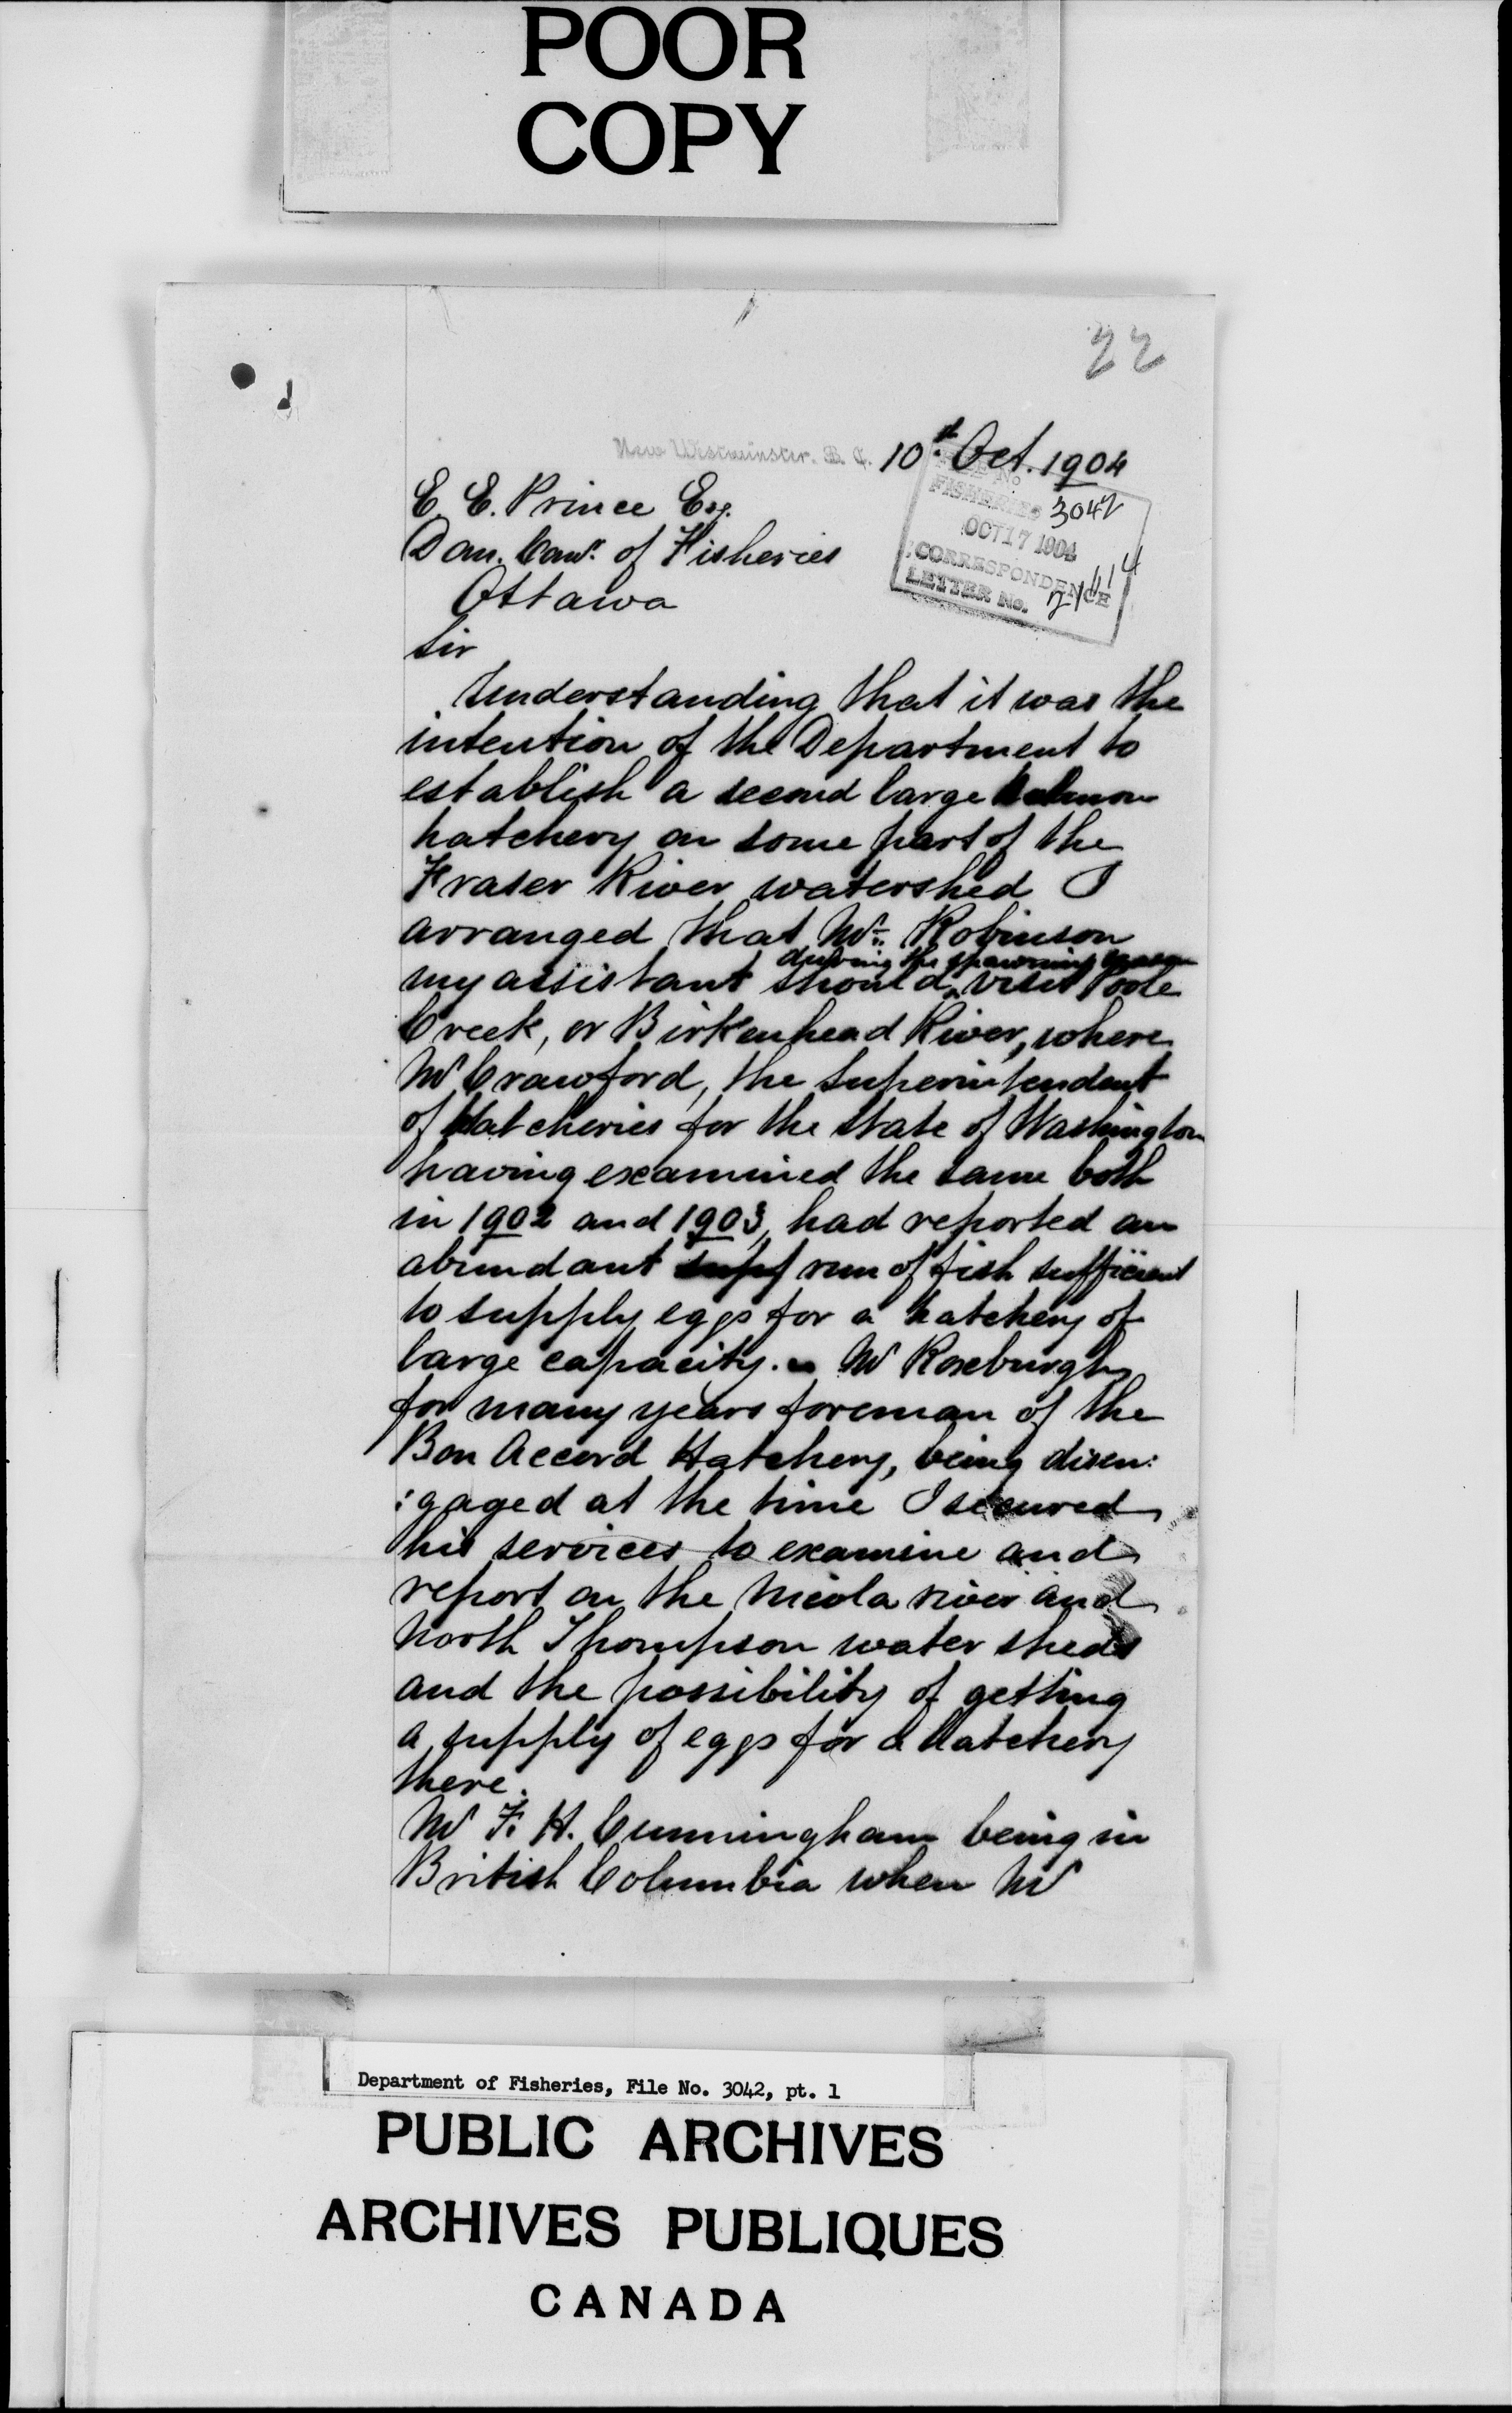 POOR
COPY
22
New Westminster. B. C. 10th Oct. 1904
E. E. Prince Esq.
Dom. Comr. of Fisheries
Ottawa
FILE No
FISHERIES 3042
OCT 17 1904
CORRESPONDENCE
LETTER No.
Sir
Understanding that it was the
intention of the Department to
establish a second large Salmon
hatchery on some part of the
Fraser River watershed I
arranged that Mr. Robinson
during the spawning season
my assistant should visit Poole
Creek, or Birkenhead River, where
Mr Crawford, the Superintendent
of Hatcheries for the State of Washington
having examined the same both
in 1902 and 1903, had reported an
abundant run of fish sufficient
to supply eggs for a hatchery of
large capacity. Mr Roxburgh
for many years foreman of the
Bon Accord Hatchery, being disen:
:gaged at the time I secured
his services to examine and
report on the Nicola river and
North Thompson water sheds
and the possibility of getting
a supply of eggs for a hatchery
there.
Mr F. H. Cunningham being in
British Columbia when Mr
Department of Fisheries, File No. 3042, pt. 1
PUBLIC ARCHIVES
ARCHIVES PUBLIQUES
CANADA